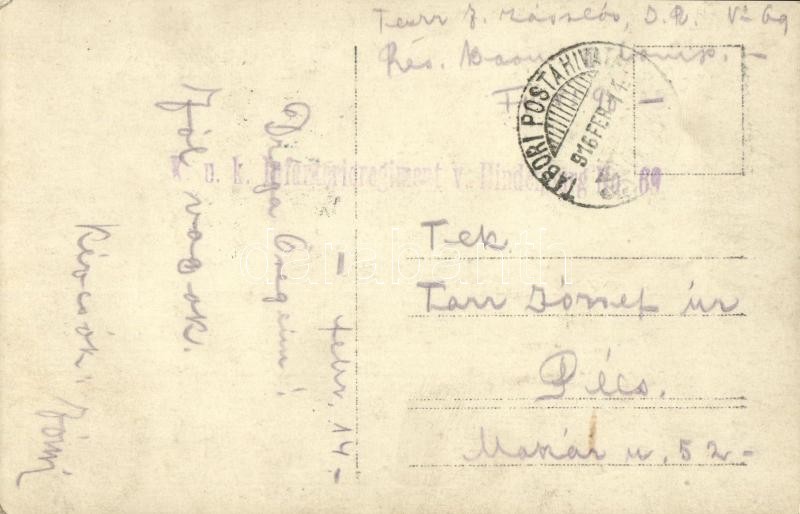 Tarr J. zászlós, I. R. No 69
Rés. Baon
TÁBORI POSTAHIVATAL
916 FEB. 14
K. u. k. Infanterieregiment v. Hindenburg No. 69
Tek.
Tarr József úr
Pécs.
Makár u. 52-
febr. 14.-
Drága Öregeim!
Jól vagyok.
Kézcsók:
darabanth